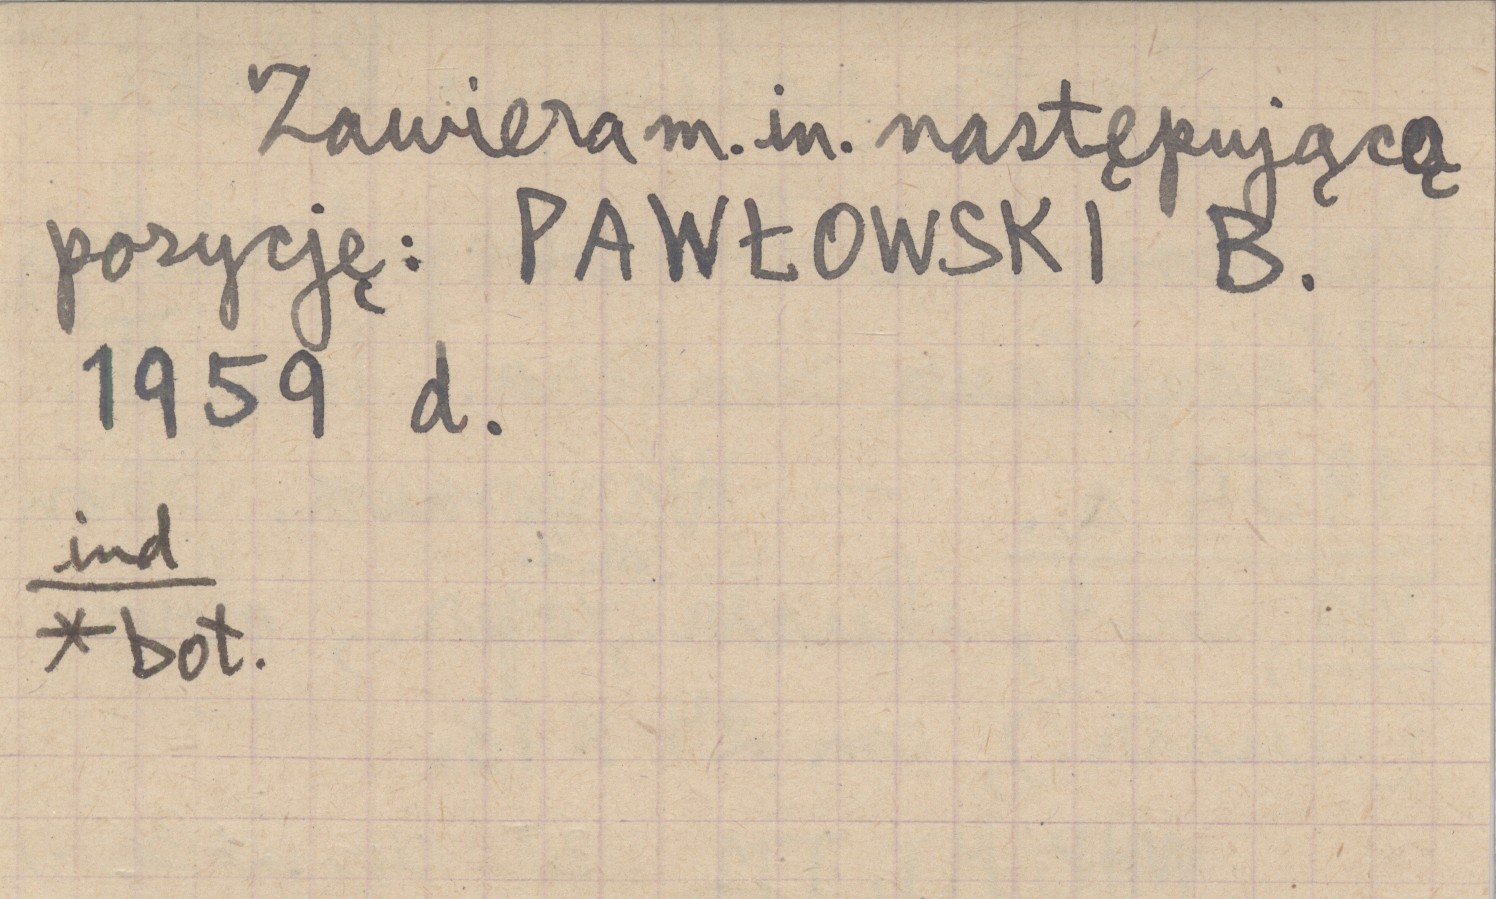 Zawiera m. in. następującą
pozycję: PAWŁOWSKI B.
1959 d.
ind
* bot.